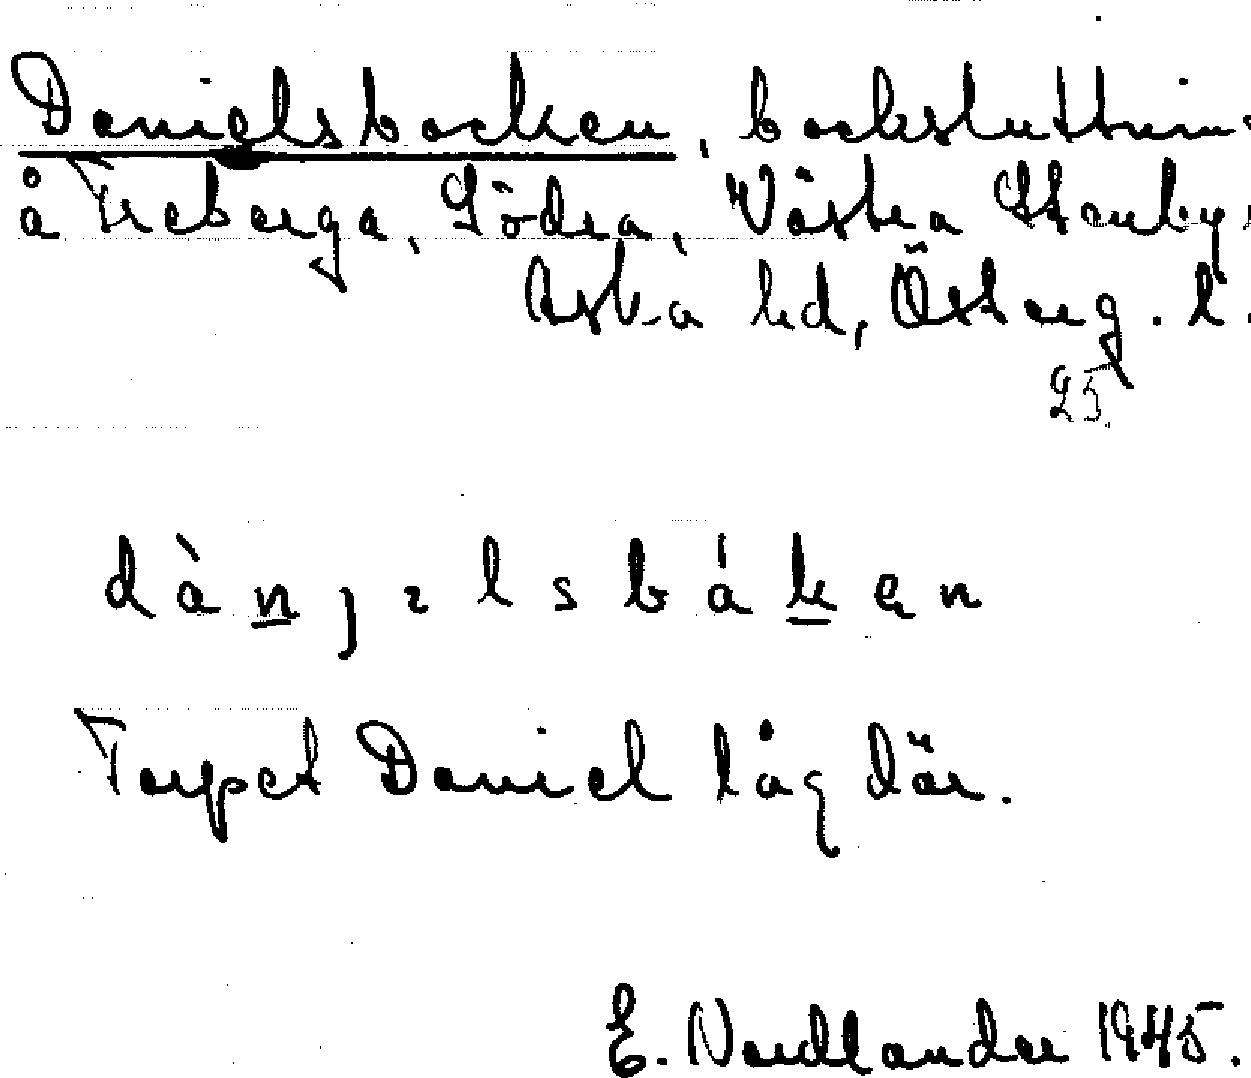 Danielsbacken, backsluttnin
å Treberga, Södra, Västra Stenby,
Aska hd, Österg. l.
25.
Torpet Daniel låg där.
E. Nordlander 1945.